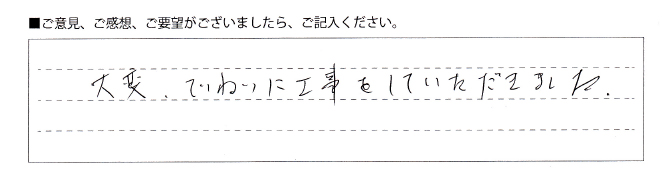 ■ご意見、ご感想、ご要望がございましたら、ご記入ください。
大変、ていねいに工事をしていただきました.